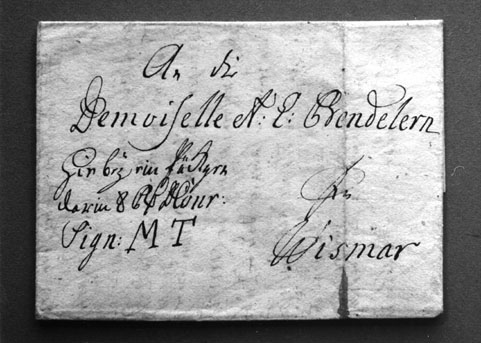 An die
Demoiselle A: E: Brendelern
Hie bey ein Päckgen
darin 8
Sign: M T
in
Wismar